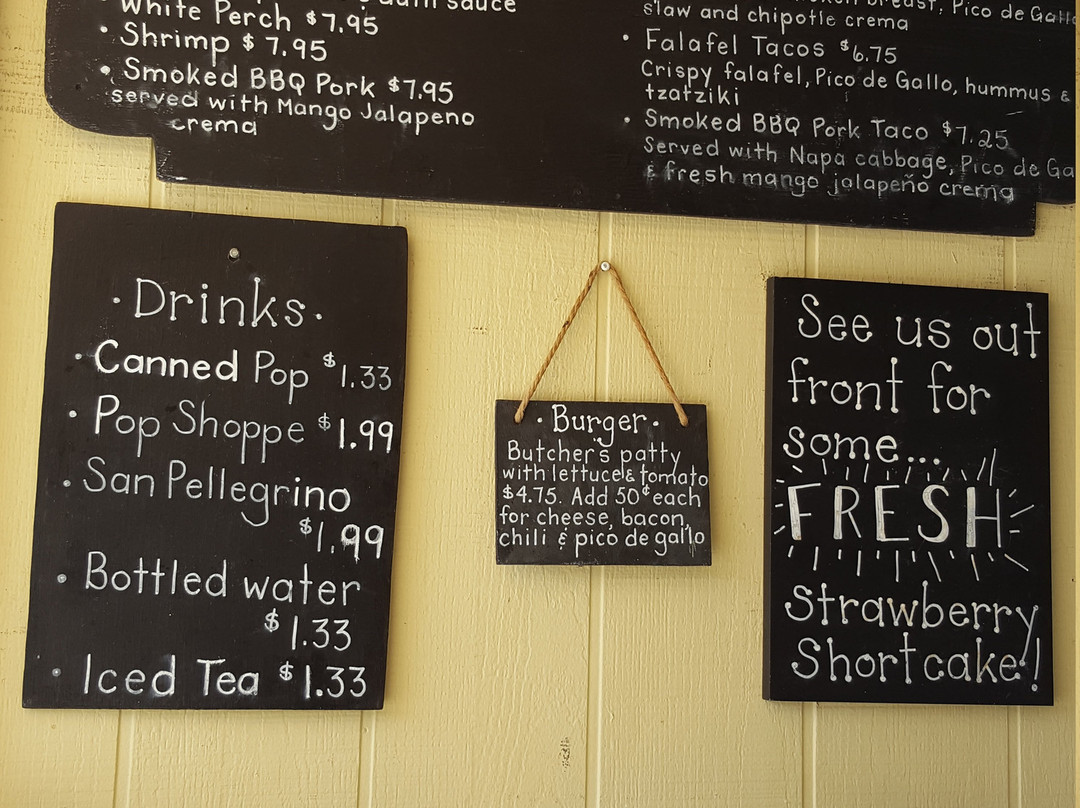 sauce
• White Perch $7.95
• Shrimp $7.95
• Smoked BBQ Pork $7.95
served with Mango Jalapeno
crema
Pico de Gallo
slaw and chipotle crema
• Falafel Tacos $6.75
Crispy falafel, Pico de Gallo, hummus &
tzatziki
• Smoked BBQ Pork Taco $7.25
Served with Napa cabbage, Pico de Ga
& fresh mango jalapeño crema
• Drinks •
• Canned Pop $1.33
• Pop Shoppe $1.99
• San Pellegrino
$1.99
• Bottled water
$1.33
• Iced Tea $1.33
• Burger •
Butcher's patty
with lettuce & tomato
$4.75. Add 50¢ each
for cheese, bacon,
chili & pico de gallo
See us out
front for
some...
FRESH
Strawberry
Shortcake!